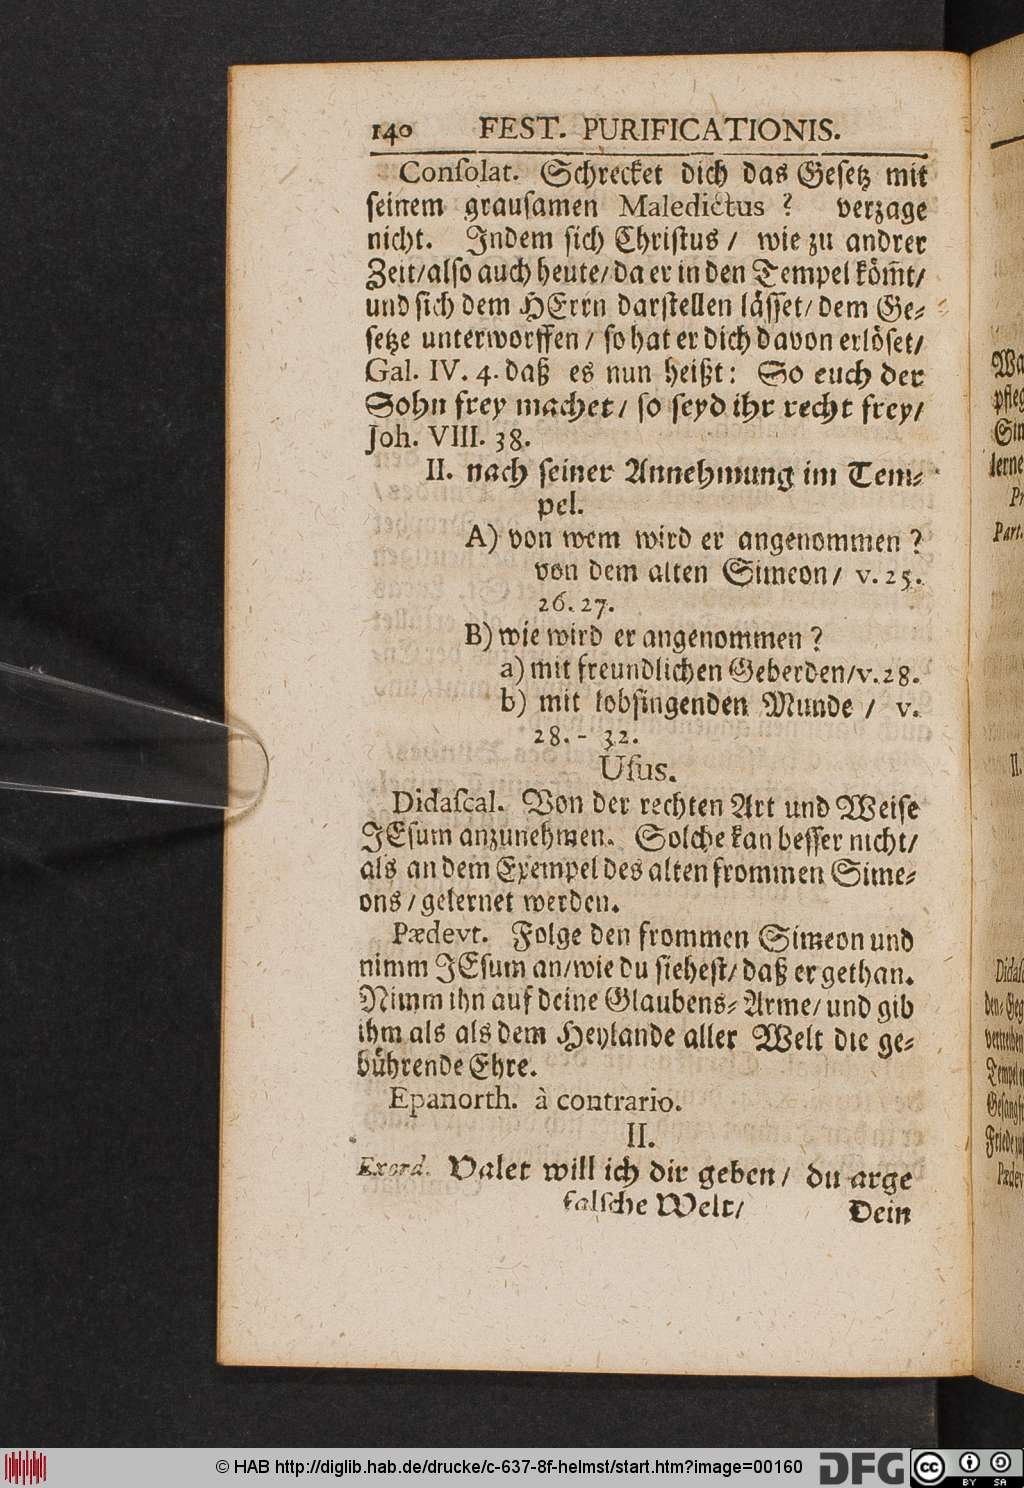 140 FEST. PURIFICATIONIS.
Conſolat. Schrecket dich das Geſetz mit
ſeinem grauſamen Maledictus ? verzage
nicht. Indem ſich Chriſtus / wie zu andrer
Zeit/ alſo auch heute/ da er in den Tempel köm̄t/
und ſich dem HErrn darſtellen läſſet/ dem Ge⸗
ſetze unterworffen / ſo hat er dich davon erlöſet/
Gal. IV. 4. daß es nun heißt: So euch der
Sohn frey machet/ ſo ſeyd ihr recht frey/
Joh. VIII. 38.
II. nach ſeiner Annehmung im Tem⸗
pel.
A) von wem wird er angenommen ?
von dem alten Simeon/ v. 25.
26. 27.
B) wie wird er angenommen ?
a) mit freundlichen Geberden/v. 28.
b) mit lobſingenden Munde / v.
28. - 32.
Uſus.
Didaſcal. Von der rechten Art und Weiſe
JEſum anzunehmen. Solche kan beſſer nicht/
als an dem Exempel des alten frommen Sime⸗
ons / gelernet werden.
Pædevt. Folge den frommen Simeon und
nimm JEſum an/wie du ſieheſt/ daß er gethan.
Nimm ihn auf deine Glaubens⸗Arme/ und gib
ihm als als dem Heylande aller Welt die ge⸗
bührende Ehre.
Epanorth. à contrario.
II.
Exord. Valet will ich dir geben/ du arge
falſche Welt/ Dein
Wa
pfleg
Sin
lerne
Part.
II.
Didaſc
den⸗Geg
vertreiben
Tempel
Pædev
© HAB http://diglib.hab.de/drucke/c-637-8f-helmst/start.htm?image=00160
DFG
cc
BY SA